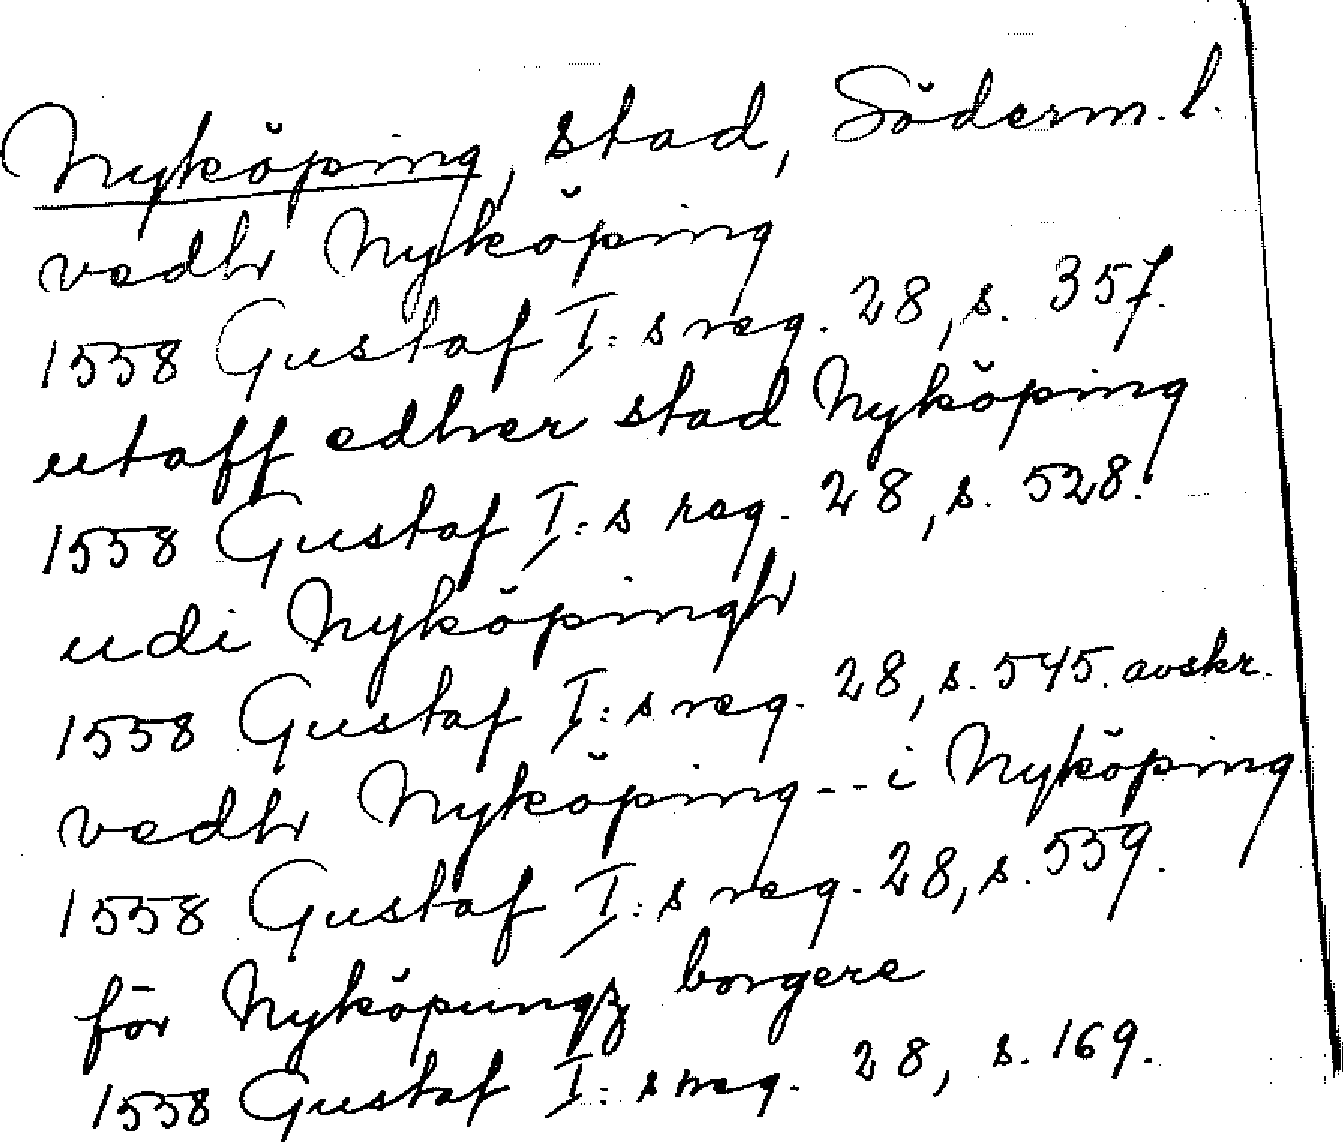 Nyköping, stad, Söderm. l.
vedh Nyköping
1558 Gustaf I:s reg. 28, s. 357.
utaff edher stad Nyköping
1558 Gustaf I:s reg. 28, s. 528.
udi Nyköpingh
1558 Gustaf I:s reg. 28, s. 545. avskr.
vedh Nyköping - - i Nyköping
1558 Gustaf I:s reg. 28, s. 559.
för Nyköpungz borgere
1558 Gustaf I:s reg. 28, s. 169.